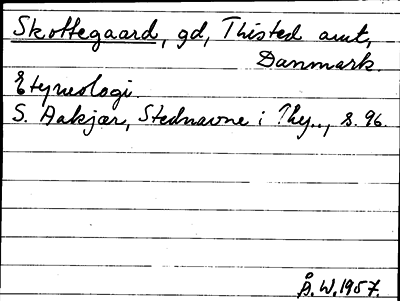 Skottegaard, gd, Thisted amt,
Danmark.
Etymologi.
S. Aakjær, Stednavne i Thy.., s. 96.
Å. W. 1957.